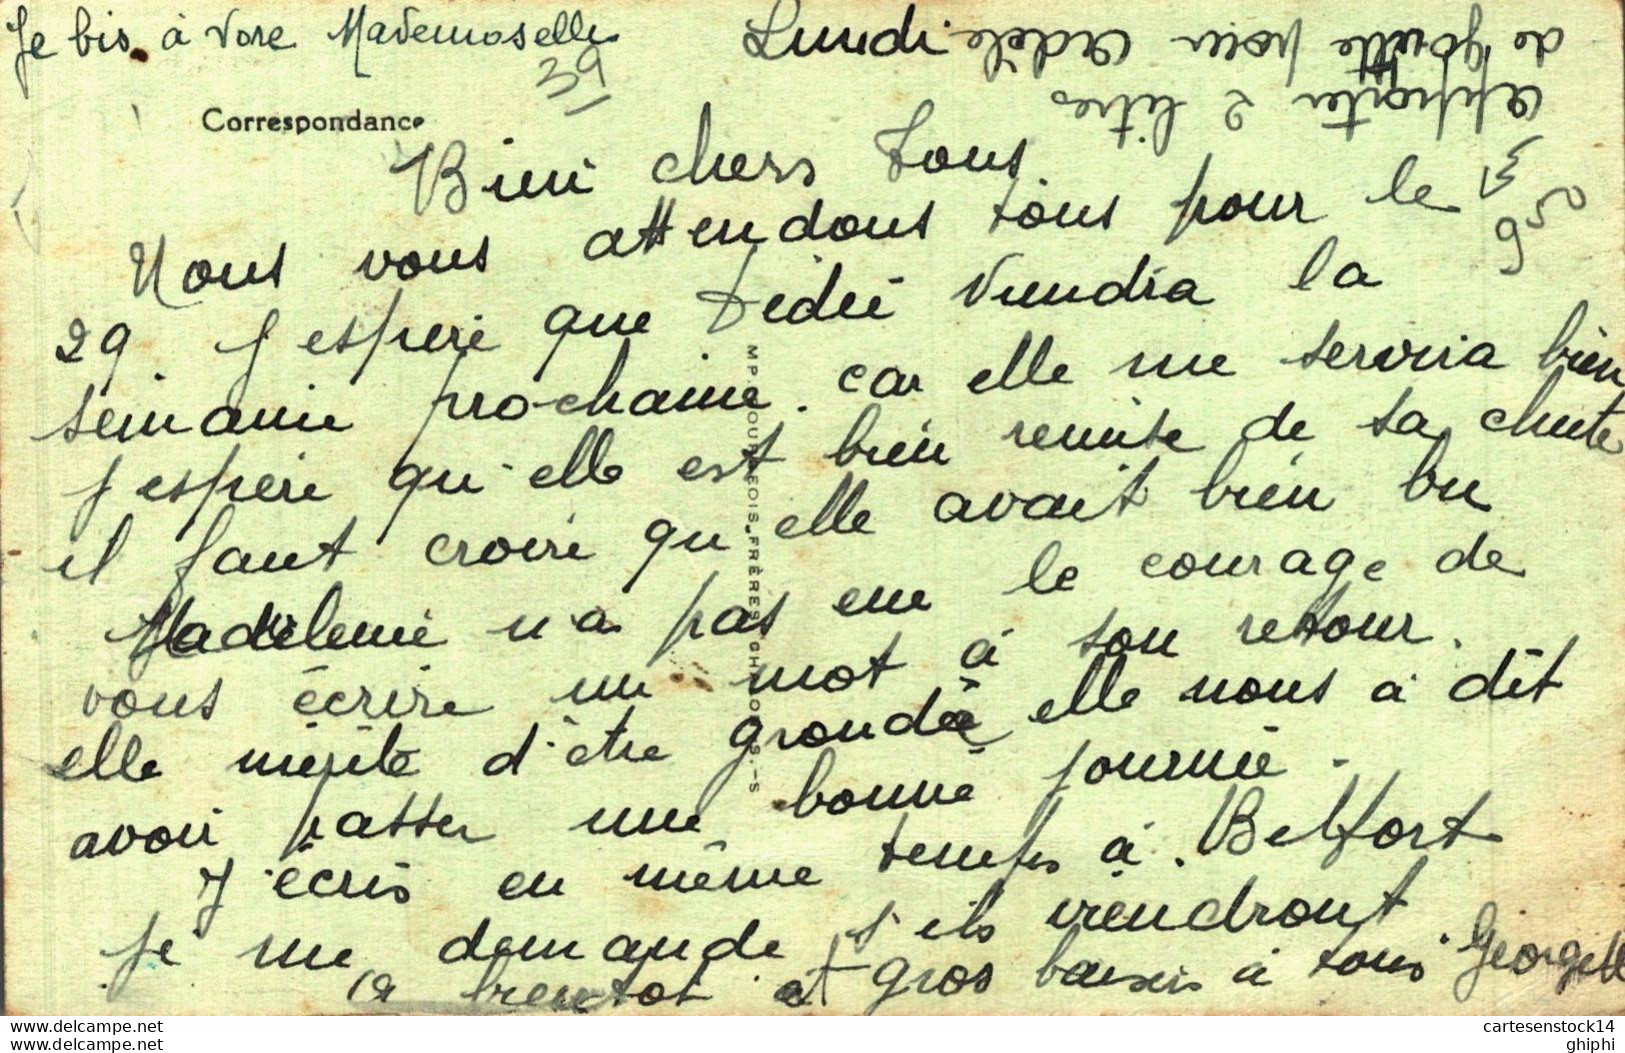 Je bis à vore Mademoselle
39
Lundi
Apporter 2 litres
de goutte pour Adèle
Correspondance
Bien chers tous
Nous vous attendons tous pour le
29 j'espere que Dédée viendra la
semaine prochaine. car elle me servira bien
j'espère qu'elle est bien remise de sa chute
il faut croire qu'elle avait bien bu
Madeleine n'a pas eue le courage de
vous écrire un mot à son retour.
elle mérite d'être grondée elle nous a dit
avoir passer une bonne journée.
J'écris en même temps à Belfort
Je me demande s'ils viendront
a bientot et gros baisers à tous Georgette
FRÈRES
cartes.delcampe.net
cartes.delcampe.net
cartesenstock14
ghiphi